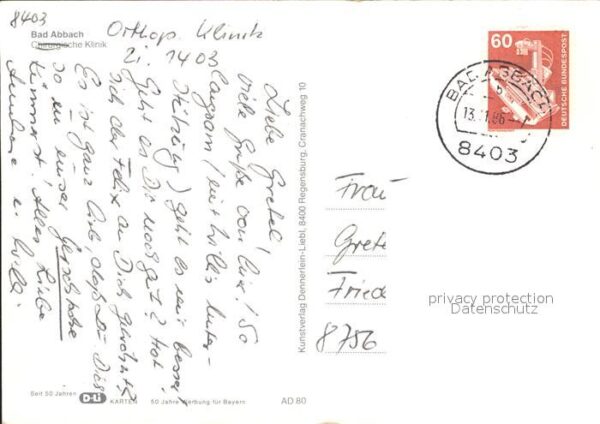 8403
Bad Abbach
Chirurgische Klinik
Orthop. Klinik
Zi. 1403
Liebe Gretel!
Viele Grüße von hier! So
langsam (mit Willis Unter-
stützung) geht es mir besser,
Geht es Dir noch gut? Hat
sich der Felix an Dich gewöhnt?
Es ist ganz lieb, daß Du Dich
so um unser
kümmerst! Alles Liebe
u. Willi
Kunstverlag Dennerlein-Liebl, 8400 Regensburg, Cranachweg 10
60
DEUTSCHE BUNDESPOST
BAD ABBACH
8403
Frau
Grete
Friede
8756
privacy protection
Datenschutz
Seit 50 Jahren D-Li KARTEN 50 Jahre Werbung für Bayern
AD 80